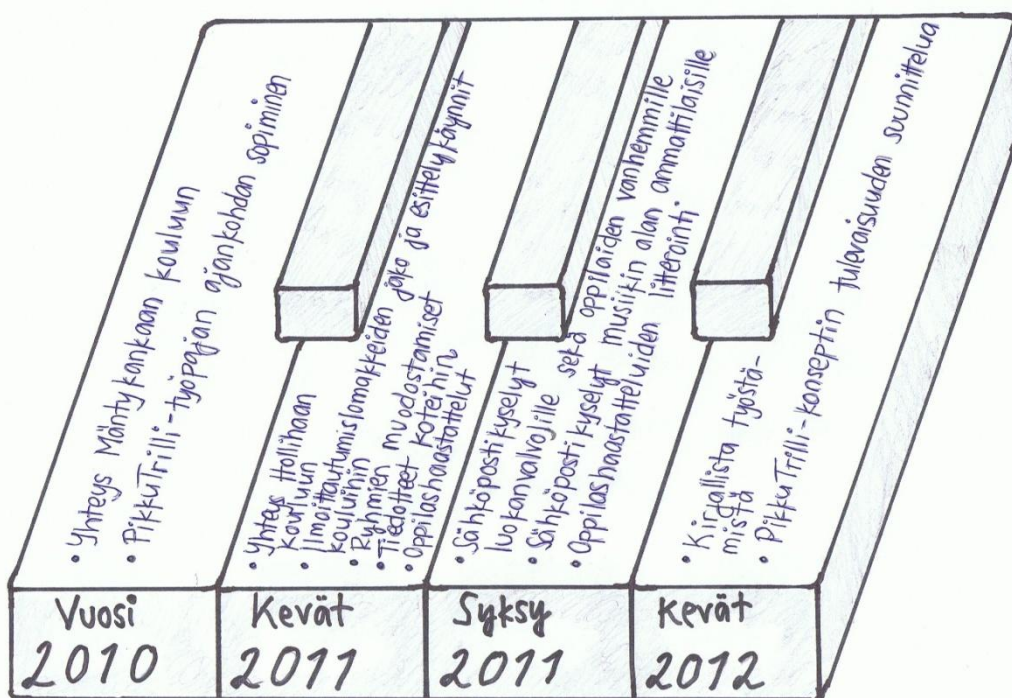 • Yhteys Mäntykankaan kouluun
• PikkuTrilli-työpajan ajankohdan sopiminen
Vuosi
2010
• Yhteys Hollihaan
kouluun
• Ilmoittautumislomakkeiden jako ja esittelykäynnit
kouluihin
• Ryhmien muodostamiset
• Tiedotteet koteihin
• Oppilashaastattelut
Kevät
2011
• Sähköpostikyselyt
luokanvalvojille sekä oppilaiden vanhemmille
• Sähköpostikyselyt musiikin alan ammattilaisille
• Oppilashaastatteluiden litterointi
Syksy
2011
• Kirjallista työstä-
mistä
• PikkuTrilli-konseptin tulevaisuuden suunnittelua
Kevät
2012